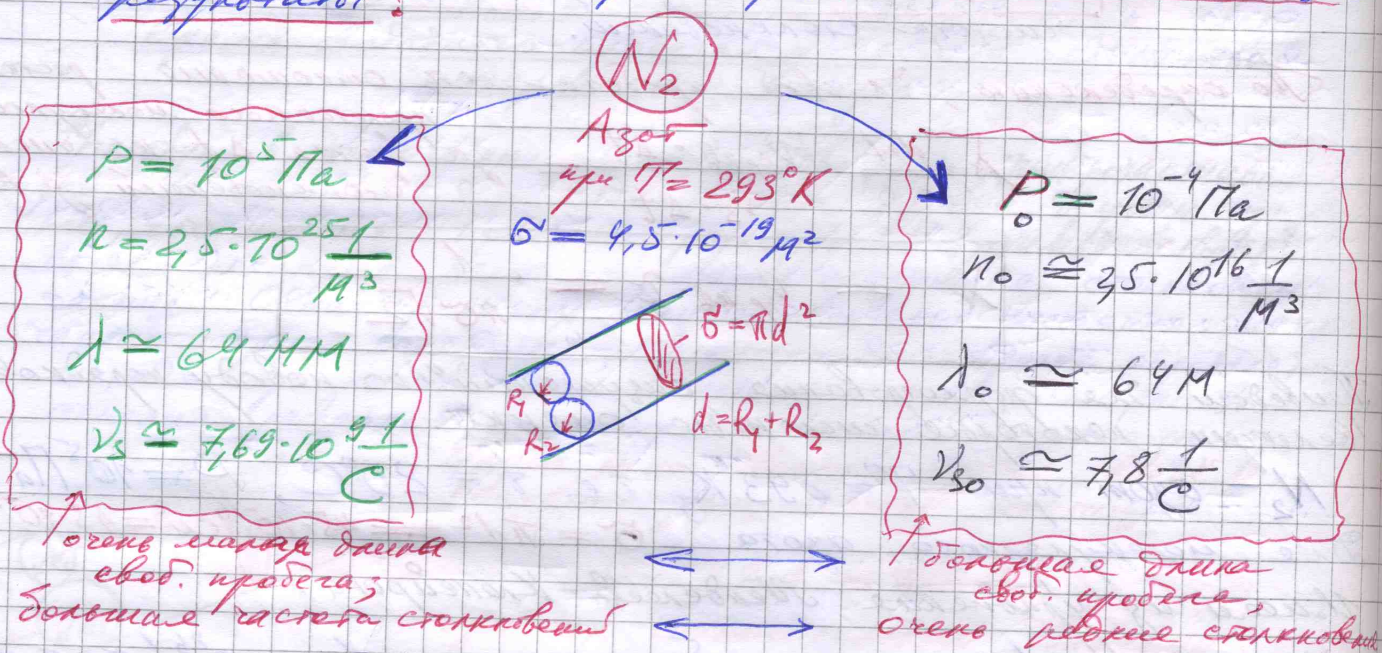 результаты:
N₂
Азот
при T = 293°K
σ = 4,5·10⁻¹⁹ м²
P = 10⁵ Па
n = 2,5·10²⁵ 1/м³
λ ≃ 64 нм
ν₃ ≃ 7,69·10⁹ 1/С
очень малая длина
своб. пробега;
большая частота столкновений
σ = πd²
R₁
R₂
d = R₁ + R₂
P₀ = 10⁻⁴ Па
n₀ ≅ 2,5·10¹⁶ 1/м³
λ₀ ≃ 64 м
ν₃₀ ≃ 7,8 1/С
большая длина
своб. пробега,
очень редкие столкновения